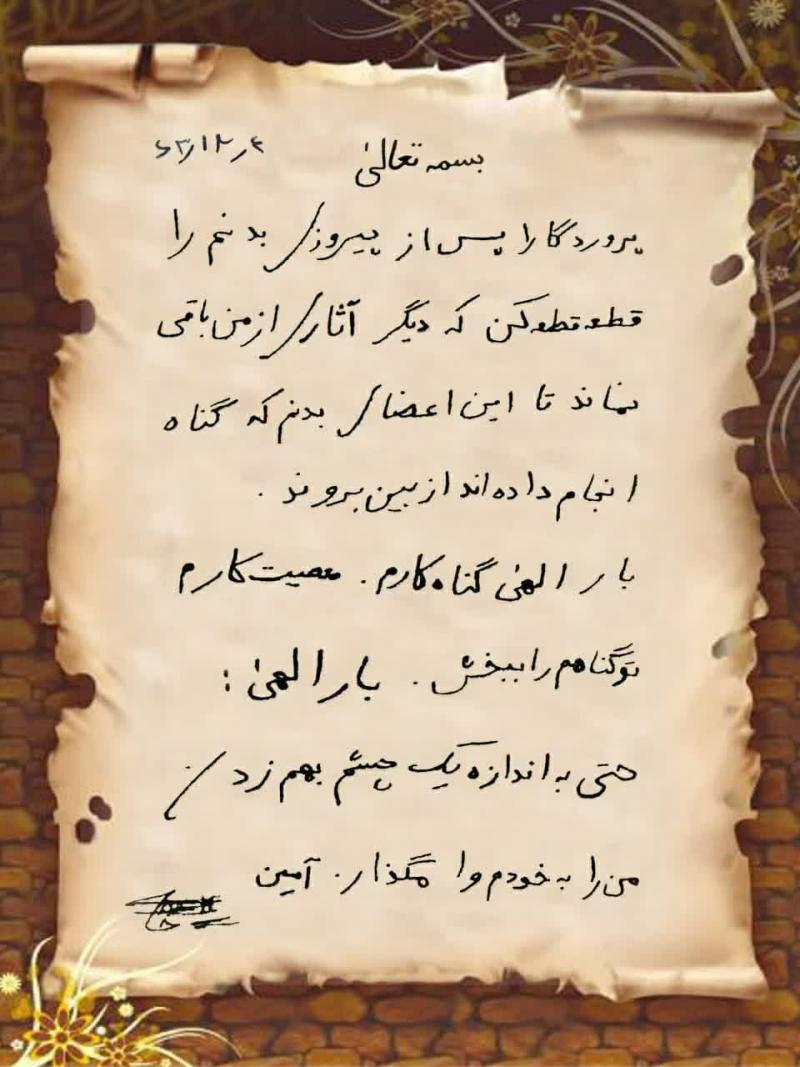 بسمه تعالیٰ ۶۳/۱۲/۴
پروردگارا پس از پیروزی بدنم را
قطعه قطعه کن که دیگر آثاری از من باقی
نماند تا این اعضای بدنم که گناه
انجام داده‌اند از بین بروند .
بار الهیٰ گناه کارم . معصیت کارم
تو گناهم را ببخش . بار الهیٰ :
حتی به اندازه یک چشم بهم زدن
من را به خودم وا مگذار . آمین